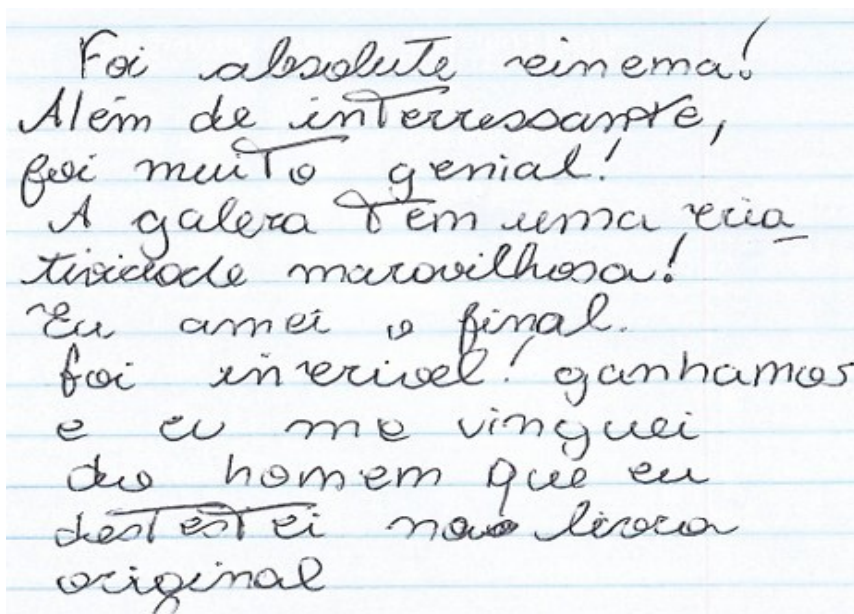 Foi absolute cinema!
Além de interressante,
foi muito genial!
A galera tem uma cria
tividade maravilhosa!
Eu amei o final.
foi incrivel! ganhamos
e eu me vinguei
do homem que eu
destestei no livro
original